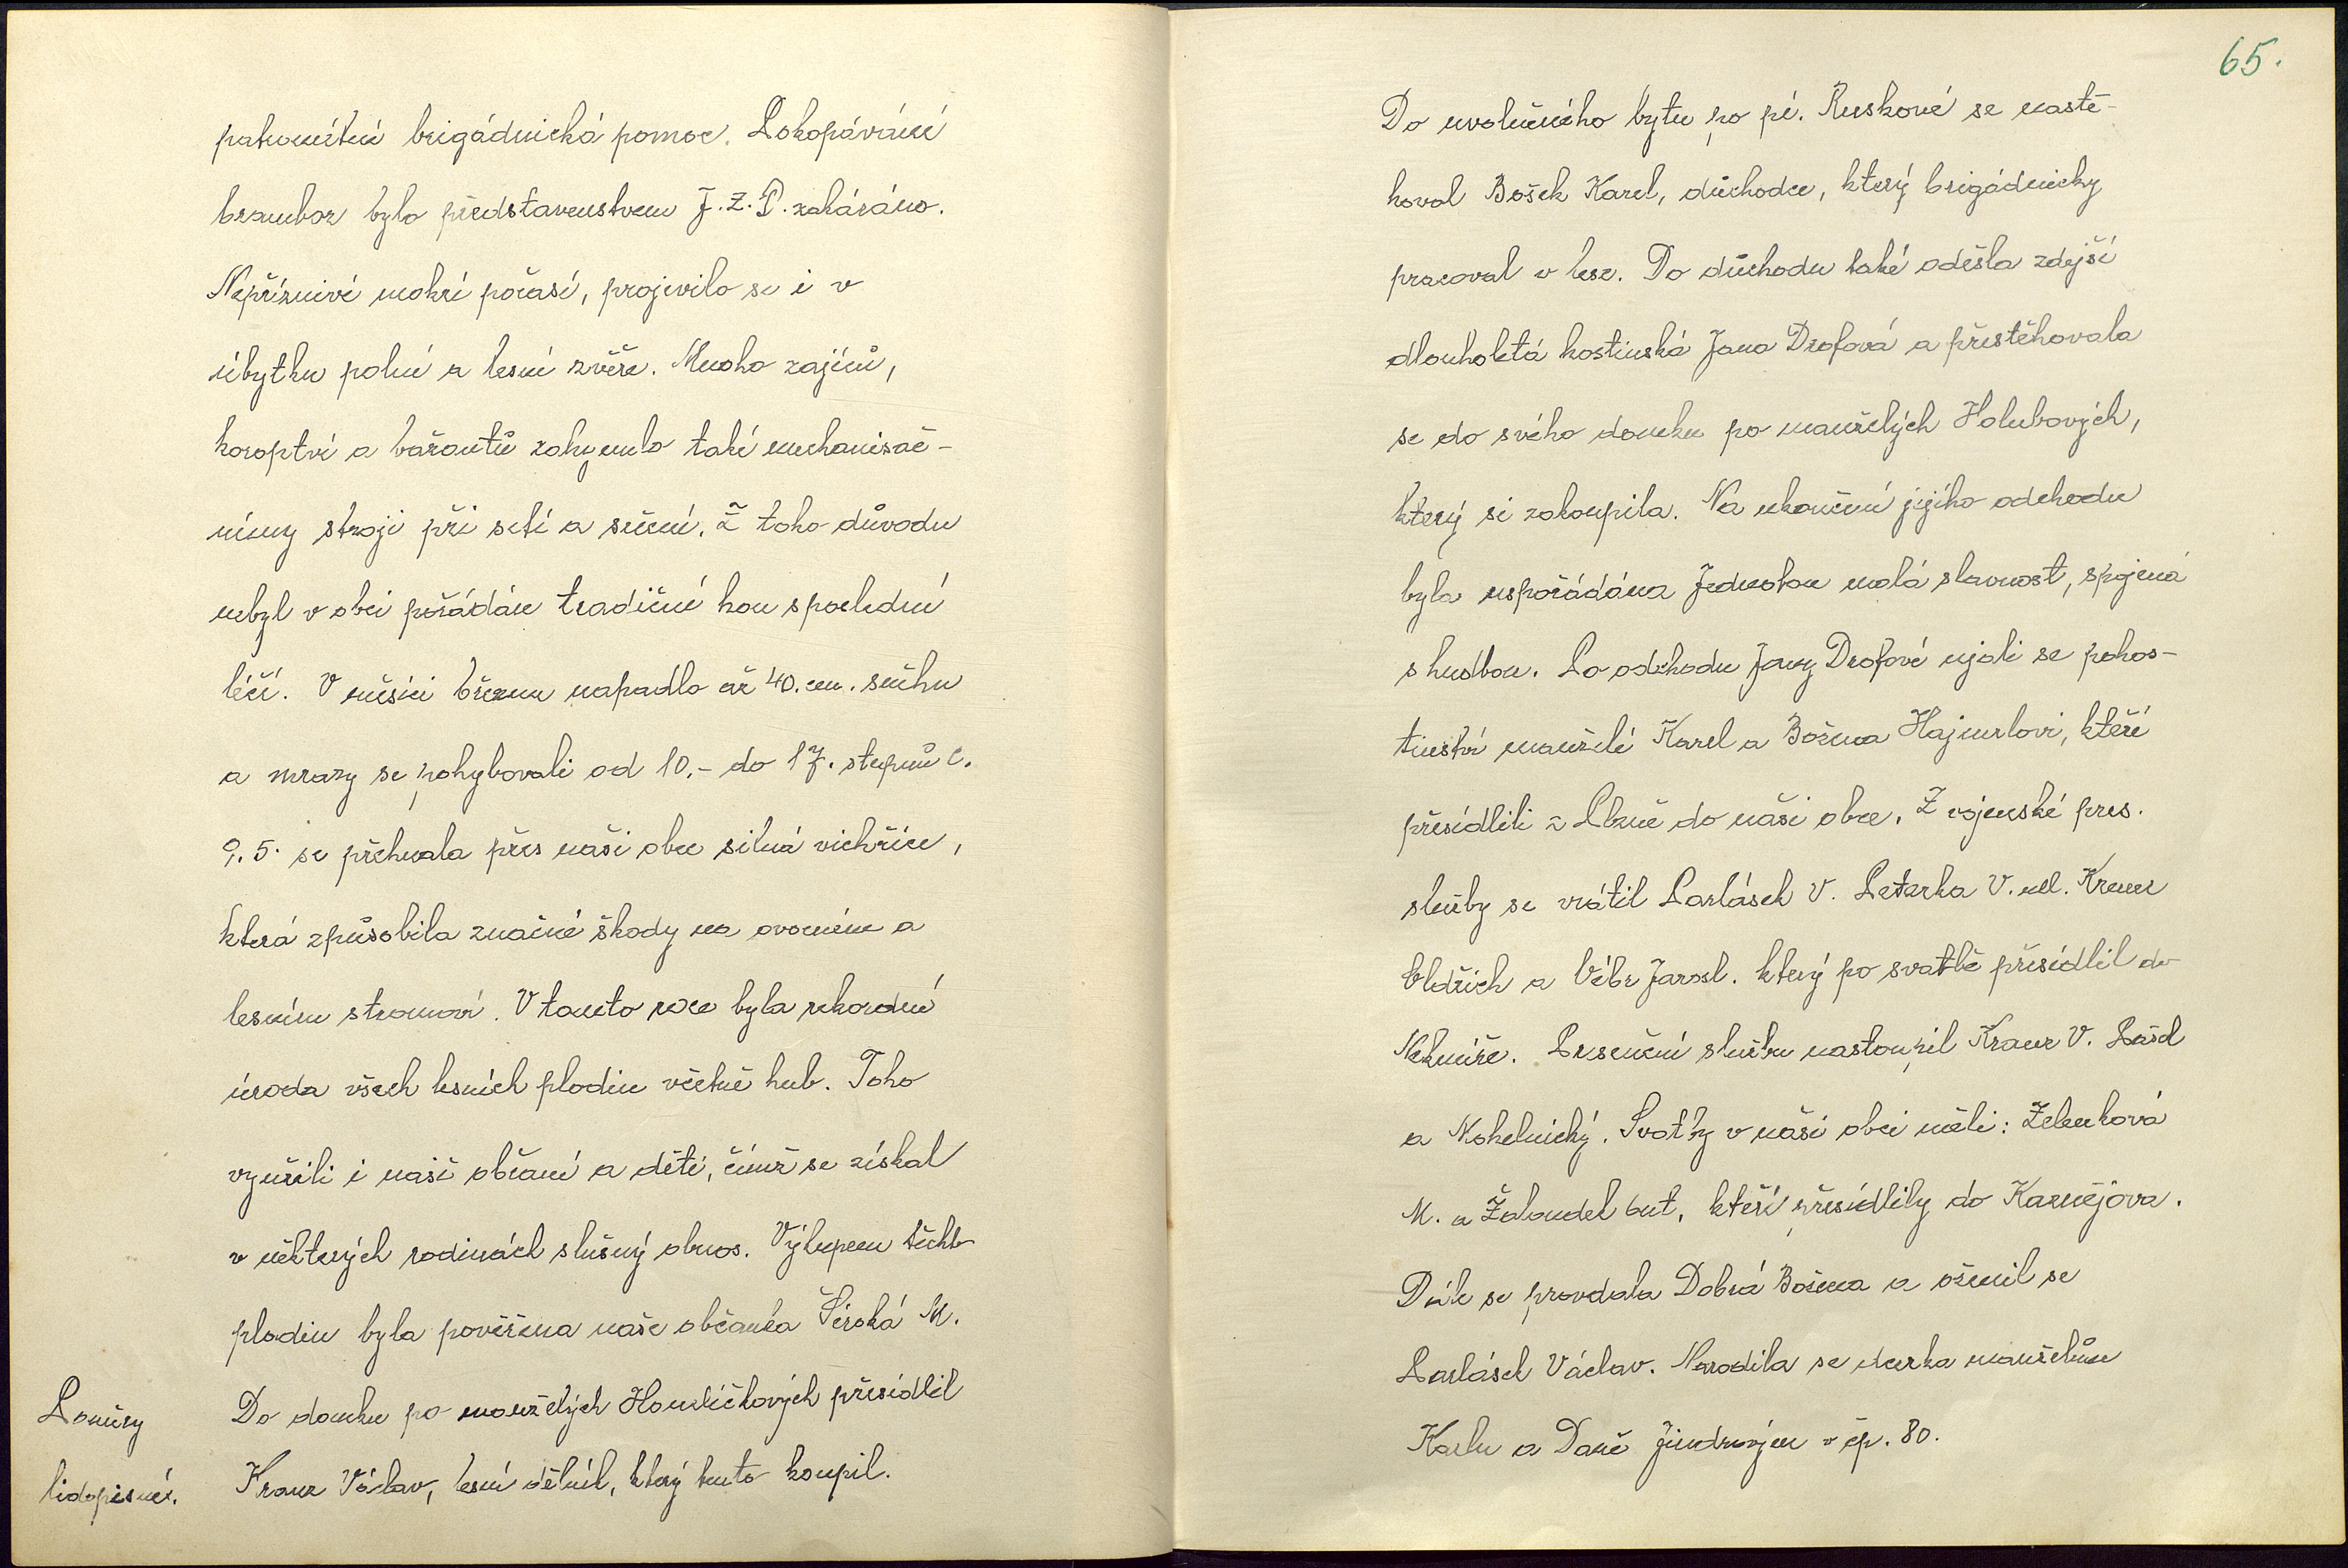 patronátní brigádnická pomoc. Pokopávání
brambor bylo představenstvem J.Z.D. zakázáno.
Nepříznivé mokré počasí, projevilo se i v
úbytku polní a lesní zvěře. Mnoho zajíců,
koroptví a bažantů zahynulo také mechanisač-
nímy stroji při setí a sečení. Z toho důvodu
nebyl v obci pořádán tradiční hon s poslední
léčí. V měsíci březnu napadlo až 40. cm. sněhu
a mrazy se pohybovali od 10.- do 17. stupňů C.
9. 5. se přehnala přes naši obec silná vichřice,
která způsobila značné škody na ovocném a
lesním stromoví. V tomto roce byla rekordní
úroda všech lesních plodin včetně hub. Toho
využili i naši občané a děti, čímž se získal
v některých rodinách slušný obnos. Výkupem těchto
plodin byla pověřena naše občanka Široká M.
Poměry
lidopisné.
Do domku po manželých Homličkových přesídlil
Kranz Václav, lesní dělník, který tento koupil.
65.
Do uvolněného bytu po pí. Ruskové se nastě-
hoval Bošek Karel, důchodce, který brigádnicky
pracoval v lese. Do důchodu také odešla zdejší
dlouholetá hostinská Jana Drofová a přestěhovala
se do svého domku po manželých Holubových,
který si zakoupila. Na ukončení jejího odchodu
byla uspořádána Jednotou malá slavnost, spojená
s hudbou. Po odchodu Jany Drofové ujali se pohos-
tinství manželé Karel a Božena Hajmrlovi, kteří
přesídlili z Plzně do naší obce. Z vojenské pres.
služby se vrátil Parlásek V. Peterka V. ml. Kranz
Oldřich a Vébr Jarosl. který po svatbě přesídlil do
Nekmíře. Presenční službu nastoupil Kranz V. Pašd
a Nohelnický. Svatby v naší obci měli: Zelenková
M. a Žaloudek Ant. kteří přesídlily do Kaznějova.
Dále se provdala Dobrá Božena a oženil se
Parlásek Václav. Narodila se dcerka manželům
Karlu a Daně Jindrovým v čp. 80.